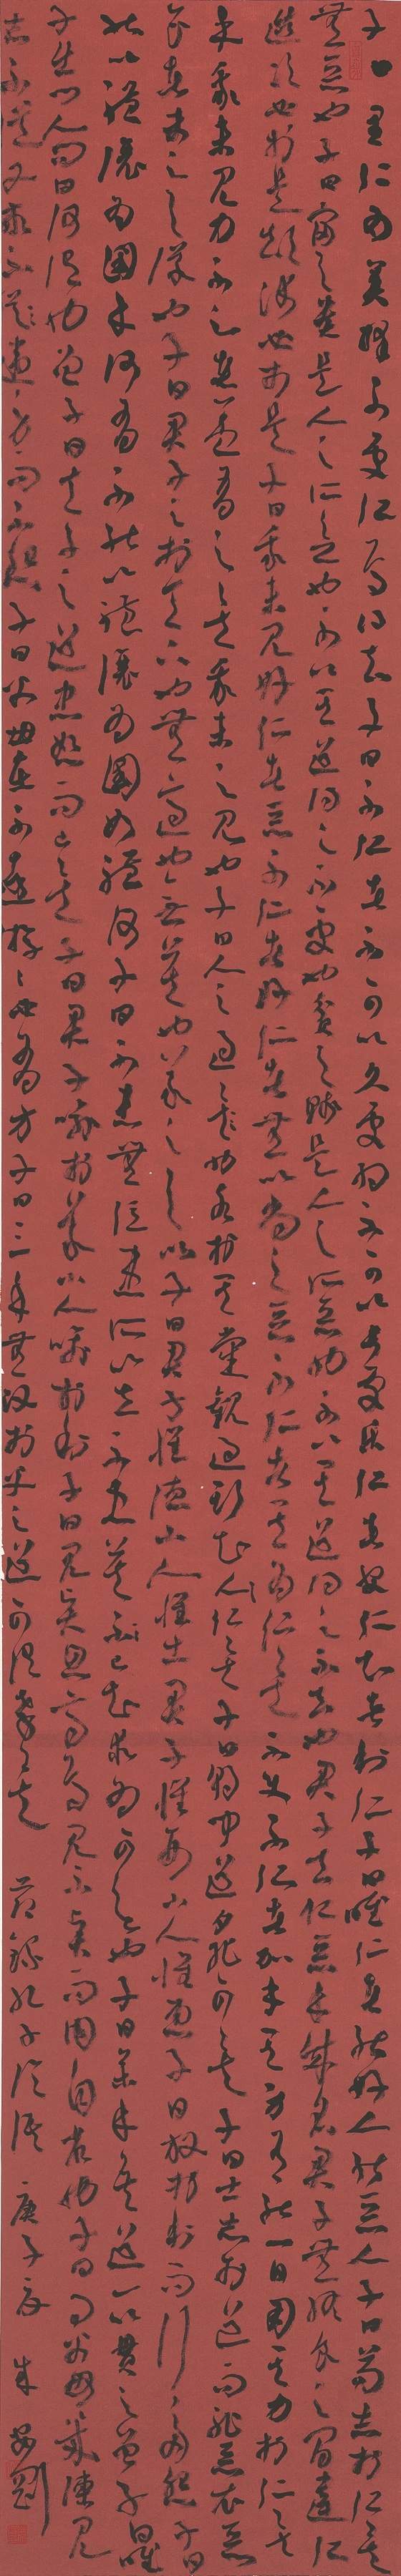 子曰里仁為美擇不處仁焉得知子曰不仁者不可以久處約不可以長處樂仁者安仁知者利仁子曰唯仁者能好人能惡人子曰苟志於仁矣
無惡也子曰富與貴是人之所欲也不以其道得之不處也貧與賤是人之所惡也不以其道得之不去也君子去仁惡乎成名君子無終食之間違仁
造次必於是顛沛必於是子曰我未見好仁者惡不仁者好仁者無以尚之惡不仁者其為仁矣不使不仁者加乎其身有能一日用其力於仁矣
乎我未見力不足者蓋有之矣我未之見也子曰人之過也各於其黨觀過斯知仁矣子曰朝聞道夕死可矣子曰士志於道而恥惡衣惡
食者未足與議也子曰君子之於天下也無適也無莫也義之與比子曰君子懷德小人懷土君子懷刑小人懷惠子曰放於利而行多怨子曰
能以禮讓為國乎何有不能以禮讓為國如禮何子曰不患無位患所以立不患莫己知求為可知也子曰參乎吾道一以貫之曾子曰唯
子出門人問曰何謂也曾子曰夫子之道忠恕而已矣子曰君子喻於義小人喻於利子曰見賢思齊焉見不賢而內自省也子曰事父母幾諫見
志不從又敬不違勞而不怨子曰父母在不遠遊遊必有方子曰三年無改於父之道可謂孝矣 節錄孔子論語 庚子